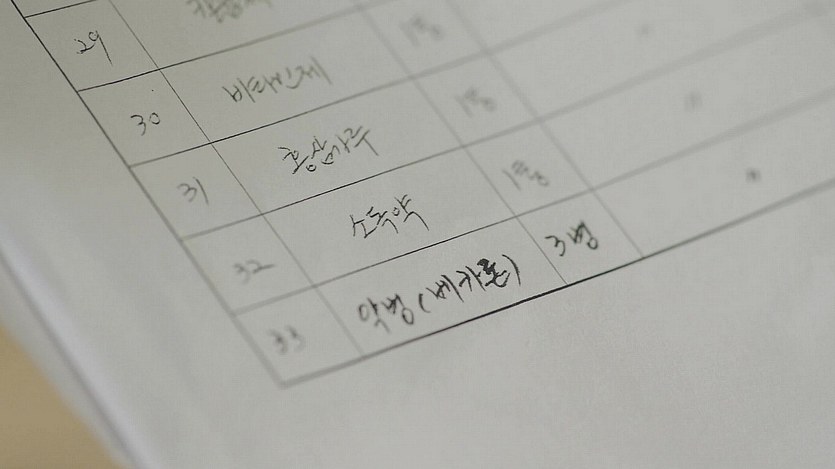 29 1통
30 비타민제 1통 〃
31 홍삼가루 1통 〃
32 소독약 1통 〃
33 약병(베카론) 3병